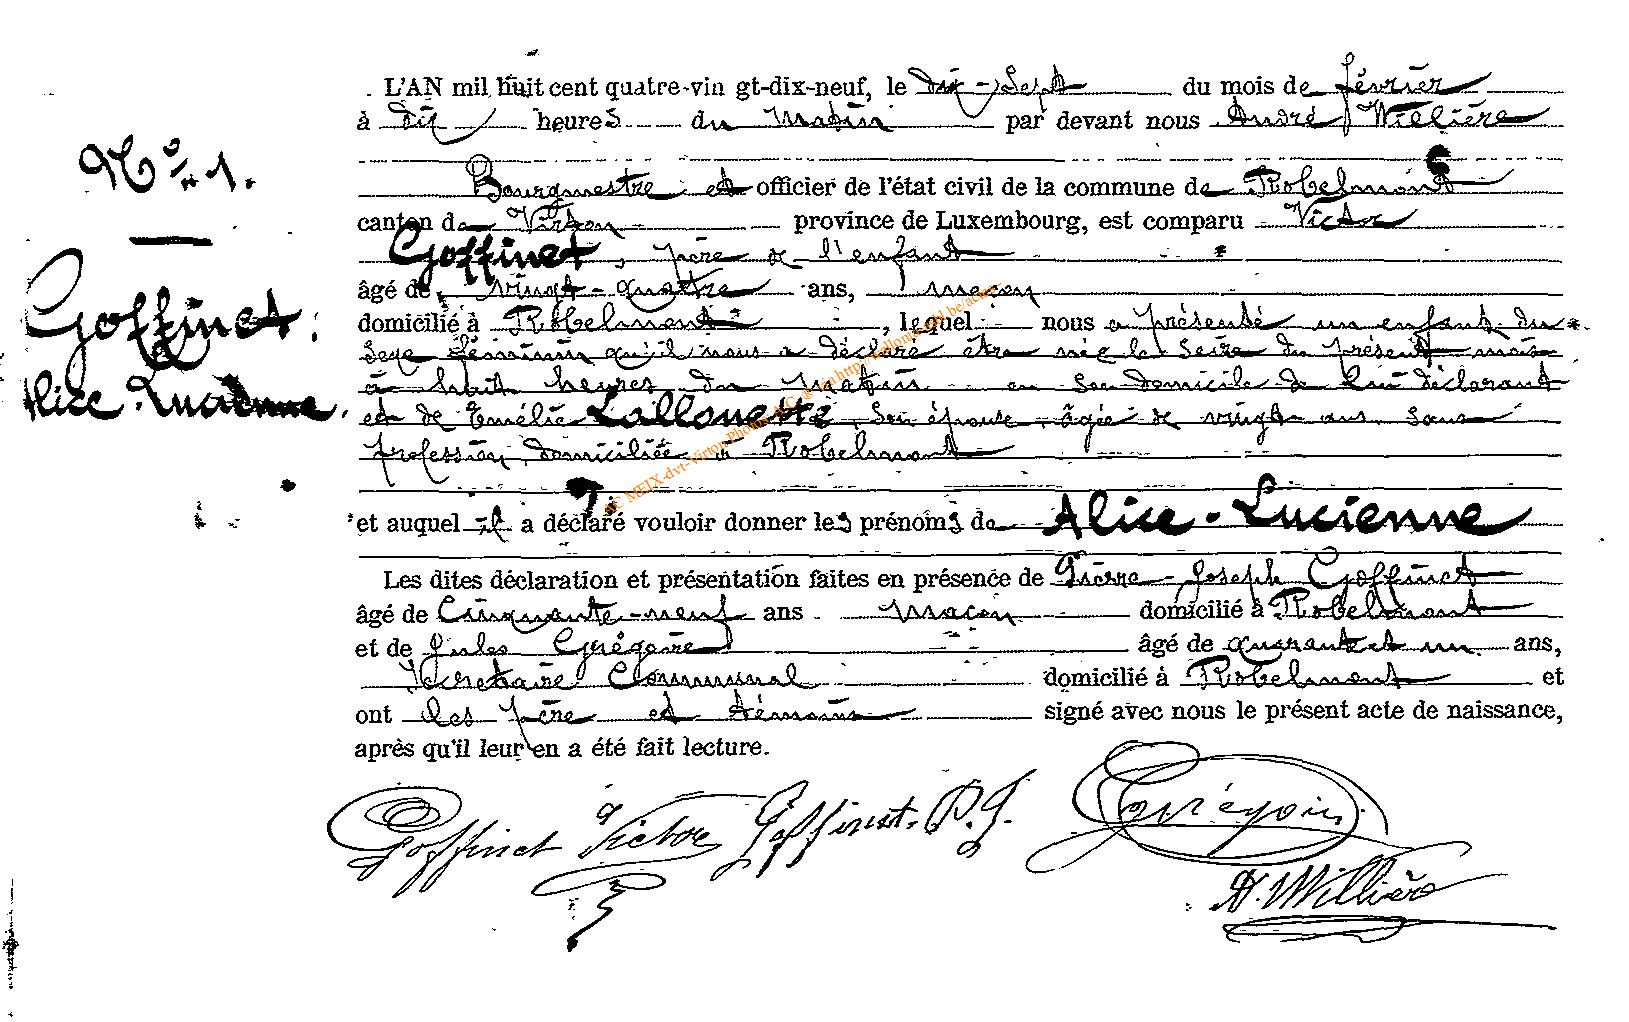 L'AN mil huit cent quatre-vingt-dix-neuf, le dix-sept du mois de février
à dix heures du matin par devant nous André Willière
N° 1.
Bourgmestre et officier de l'état civil de la commune de Robelmont
canton de Virton province de Luxembourg, est comparu Victor
Goffinet, père de l'enfant
âgé de vingt-quatre ans, maçon
Goffinet,
domicilié à Robelmont, lequel nous a présenté un enfant du
sexe féminin qu'il nous a déclaré être née le seize du présent mois
à huit heures du matin en son domicile de lui déclarant
Alice-Lucienne.
et de Emélie Lallouette, son épouse, âgée de vingt ans sans
profession, domiciliée à Robelmont
et auquel il a déclaré vouloir donner les prénoms de Alice-Lucienne
Les dites déclaration et présentation faites en présence de Pierre-Joseph Goffinet
âgé de cinquante-neuf ans maçon domicilié à Robelmont
et de Jules Grégoire âgé de quarante un ans,
Secrétaire Communal domicilié à Robelmont et
ont les père et témoins signé avec nous le présent acte de naissance,
après qu'il leur en a été fait lecture.
Goffinet Victor Goffinet. P. J. Grégoire
A. Willière